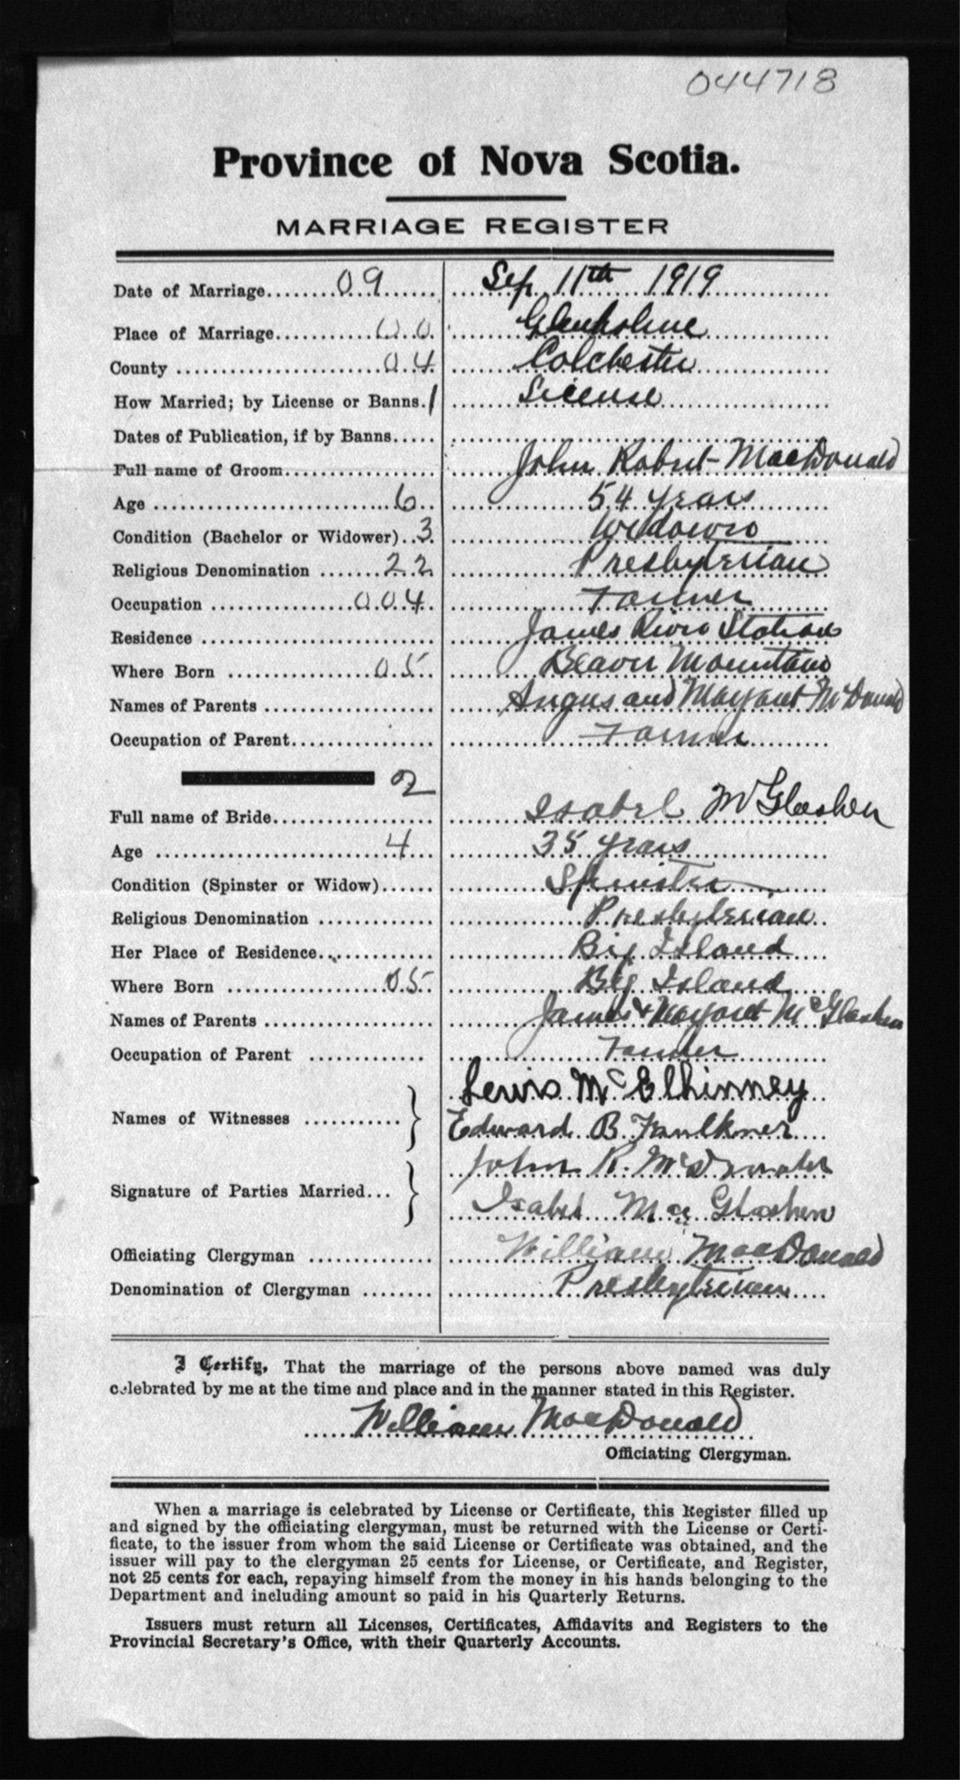 044718
Province of Nova Scotia.
MARRIAGE REGISTER
Date of Marriage........09...... ....Sep 11th 1919............
Place of Marriage............00. ......Glenholme............
County ........................04. ......Colchester............
How Married; by License or Banns.1 ......License............
Dates of Publication, if by Banns.....
Full name of Groom.................. John Robert MacDonald
Age ..........................6.. ............54 years......
Condition (Bachelor or Widower)..3 ............Widower......
Religious Denomination .......22 ............Presbyterian
Occupation ...............004. ............Farmer......
Residence ........................... ......James River Station
Where Born ................05. ......Beaver Mountain
Names of Parents .................... ....Angus and Margaret McDonald
Occupation of Parent................. ............Farmer......
2
Full name of Bride................... ......Isabel McGlashen
Age .......................4... ......35 years............
Condition (Spinster or Widow)...... ......Spinster......
Religious Denomination .............. ............Presbyterian..
Her Place of Residence............... ............Big Island....
Where Born ...................05. ............Big Island....
Names of Parents .................... ......James & Margaret McGlashen
Occupation of Parent ............... ............Farmer......
Names of Witnesses ............ } Lewis McElhinney
Edward B. Faulkner....
Signature of Parties Married... } John R. McDonald
Isabel MacGlashen
Officiating Clergyman ............... ....William MacDonald
Denomination of Clergyman ........ ............Presbyterian....
I Certify, That the marriage of the persons above named was duly
celebrated by me at the time and place and in the manner stated in this Register.
.....William MacDonald
Officiating Clergyman.
When a marriage is celebrated by License or Certificate, this Register filled up
and signed by the officiating clergyman, must be returned with the License or Certi-
ficate, to the issuer from whom the said License or Certificate was obtained, and the
issuer will pay to the clergyman 25 cents for License, or Certificate, and Register,
not 25 cents for each, repaying himself from the money in his hands belonging to the
Department and including amount so paid in his Quarterly Returns.
Issuers must return all Licenses, Certificates, Affidavits and Registers to the
Provincial Secretary's Office, with their Quarterly Accounts.